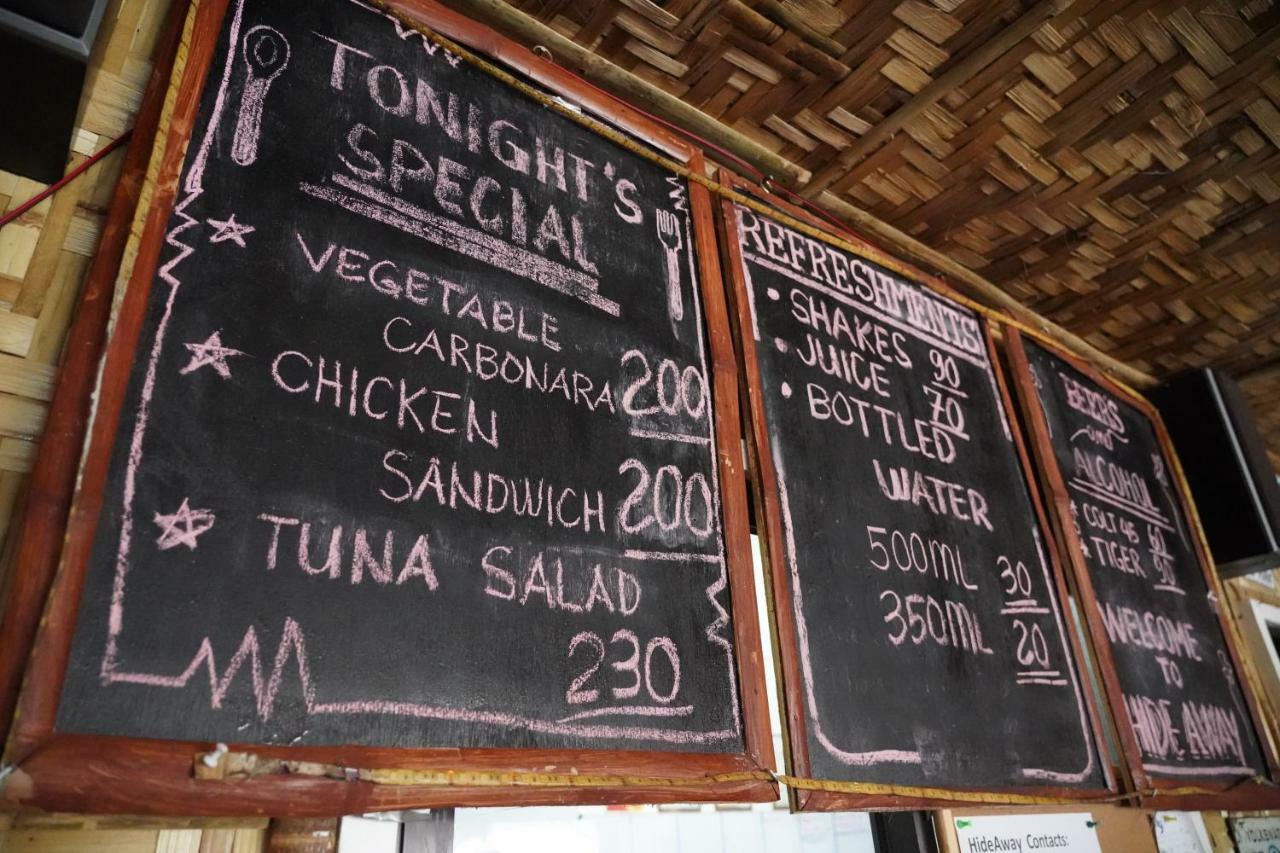 TONIGHT'S
SPECIAL
VEGETABLE
CARBONARA 200
CHICKEN
SANDWICH 200
TUNA SALAD
230
REFRESHMENTS
• SHAKES 90
• JUICE 70
• BOTTLED
WATER
500ML 30
350ML 20
BEERS
and
ALCOHOL
COLT 45 60
TIGER 90
WELCOME
TO
HIDE AWAY
HideAway Contacts: